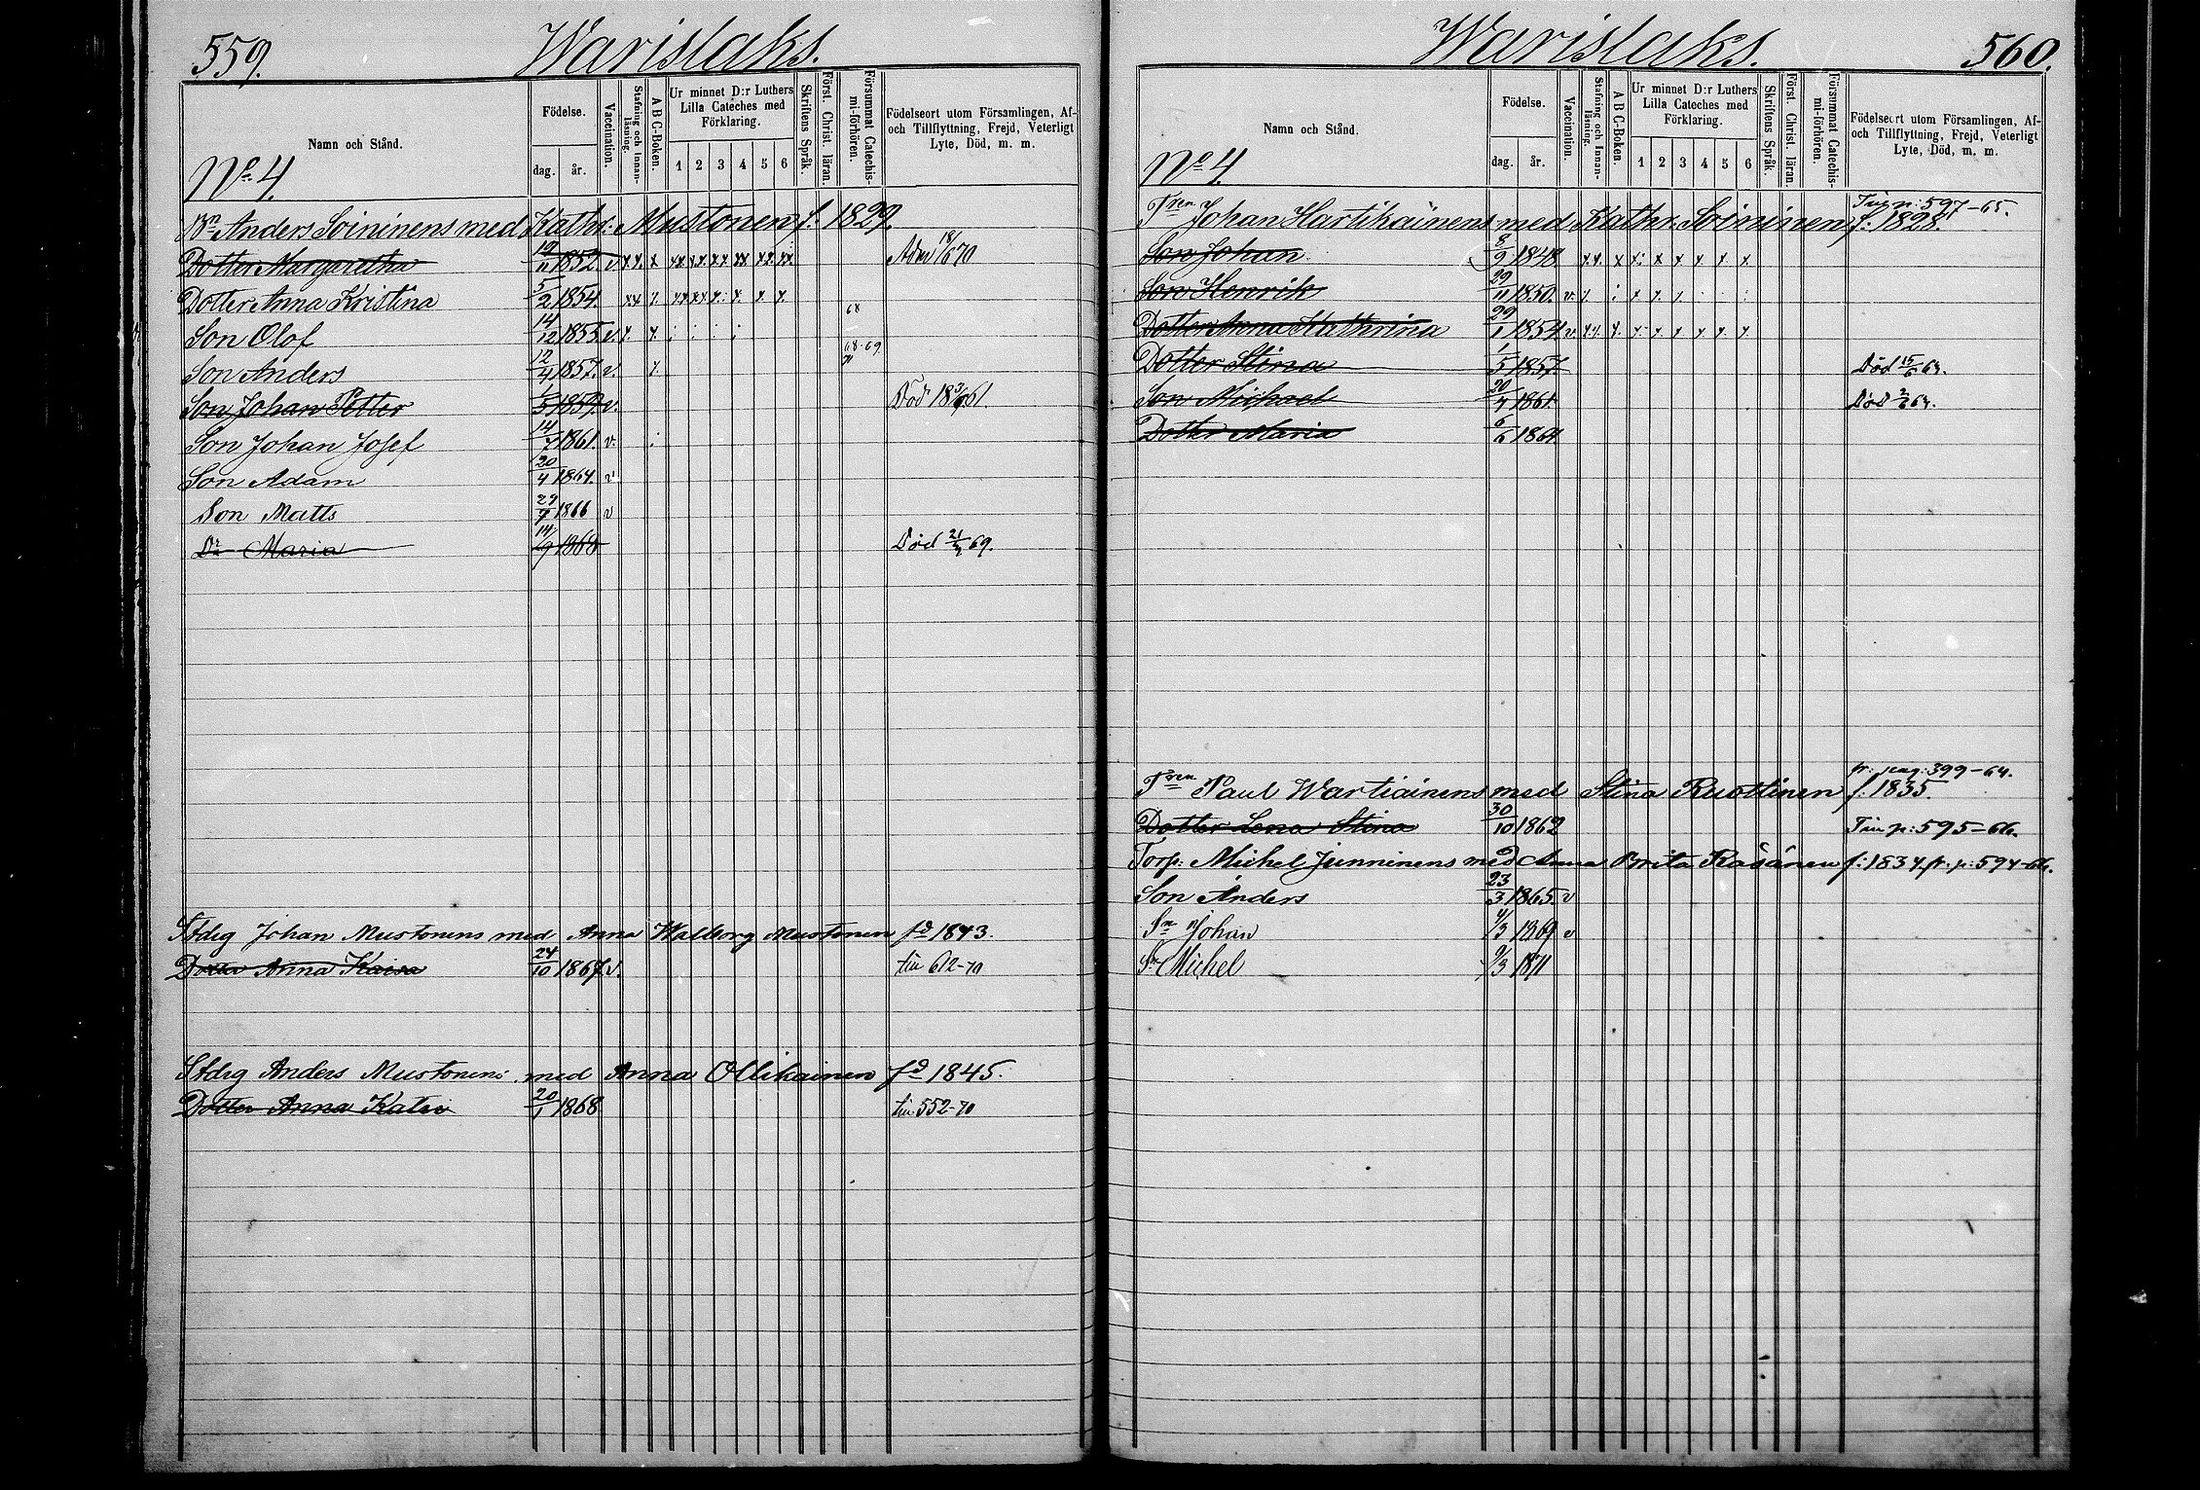 559. Warislaks.
Namn och Stånd.
Födelse.
dag. år.
Vaccination.
Stafning och Innan-läsning.
A B C-Boken.
Ur minnet D:r Luthers Lilla Cateches med Förklaring.
1 2 3 4 5 6
Skriftens Språk.
Först. Christ. läran.
Försummat Catechis-mi-förhören.
Födelseort utom Församlingen, Af- och Tillflyttning, Frejd, Veterligt Lyte, Död, m. m.
No 4.
Bn Anders Soininens med Kathr: Mustonen f. 1829.
Dotter Margaretha 11 1852. v. Adm 18/6 70
Dotter Anna Kristina 5/2 1854 68
Son Olof 14/12 1855. v. 68-69
Son Anders 12/4 1857. v.
Son Johan Petter 1859. v. Död 61.
Son Johan Josef 14 1861. v.
Son Adam 20/4 1864. v
Son Matts 29 1866 v
Dr Maria 14/9 1868 Död 69.
Stdig Johan Mustonens med Anna Walborg Mustonen fd 1843.
Anna Kaisa 24/10 1867 v. tin 612-70
Stdig Anders Mustonens med Anna Ollikainen fd 1845.
Dotter Anna Katri 20/1 1868 tin 552-70
Warislaks. 560.
Namn och Stånd.
Födelse.
dag. år.
Vaccination.
Stafning och Innan-läsning.
A B C-Boken.
Ur minnet D:r Luthers Lilla Cateches med Förklaring.
1 2 3 4 5 6
Skriftens Språk.
Först. Christ. läran.
Försummat Catechis-mi-förhören.
Födelseort utom Församlingen, Af- och Tillflyttning, Frejd, Veterligt Lyte, Död, m. m.
No 4.
Tin p: 597-65.
Tren Johan Hartikainens med Kathr. Soininen f: 1828.
Son Johan 8/9 1848
Son Henrik 29/11 1850. v.
Dotter Anna Kathrina 29/1 1854 v.
Dotter Stina 1/5 1857 Död 15/6 64.
Son Michael 20 1861. Död 64.
Dotter Maria 6/6 1864
fr: pag: 399-64.
Tren Paul Wartiainens med Stina Ruottinen f. 1835.
Dotter Lena Stina 30/10 1862 Tin p: 595-66.
Torp: Michel Junninens med Anna Brita Räsänen f: 1834. fr. p: 594-66.
Son Anders 23/3 1865. v
Sn Johan 4/3 1869 v
Sn Michel 9/3 1871